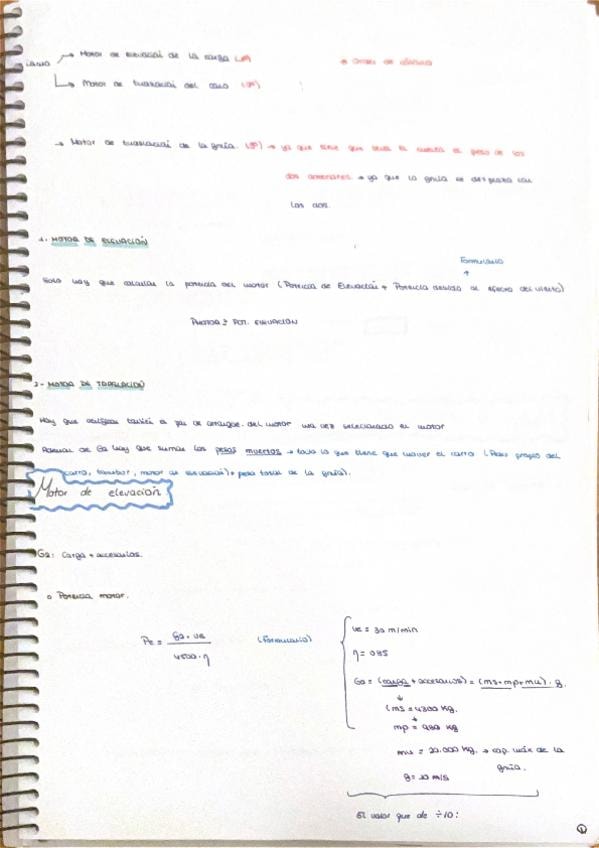 CARRO → Motor de elevación de la carga (1M)
→ Motor de traslación del carro (1M)
→ Motor de traslación de la grúa. → ya que tiene que tener en cuenta el peso de los
dos → ya que la grúa se desplaza con
los dos.
1- MOTOR DE ELEVACIÓN
Formulario
↑
Solo hay que calcular la potencia del motor (Potencia de Elevación + Potencia debida al efecto del viento)
PMOTOR ≥ POT. ELEVACIÓN
2- MOTOR DE
Hay que también el par de arranque del motor una vez seleccionado el motor
Además de Ga hay que sumar los pesos muertos → todo lo que tiene que mover el carro (Peso propio del
carro, tambor, motor de elevación) + peso total de la grúa).
Motor de elevación
Ga: Carga + accesorios.
o Potencia motor.
Pe = Ga · ve / 4500 · η (Formulario)
ve = 30 m/min
η = 0'85
Ga = (carga + accesorios) = (ms + mp + mu) · g.
↓
(ms = 4300 kg.
↓
mp = 980 kg
mu = 20.000 kg. → cap. máx de la
grúa.
g = 10 m/s
El valor que de ÷10:
1